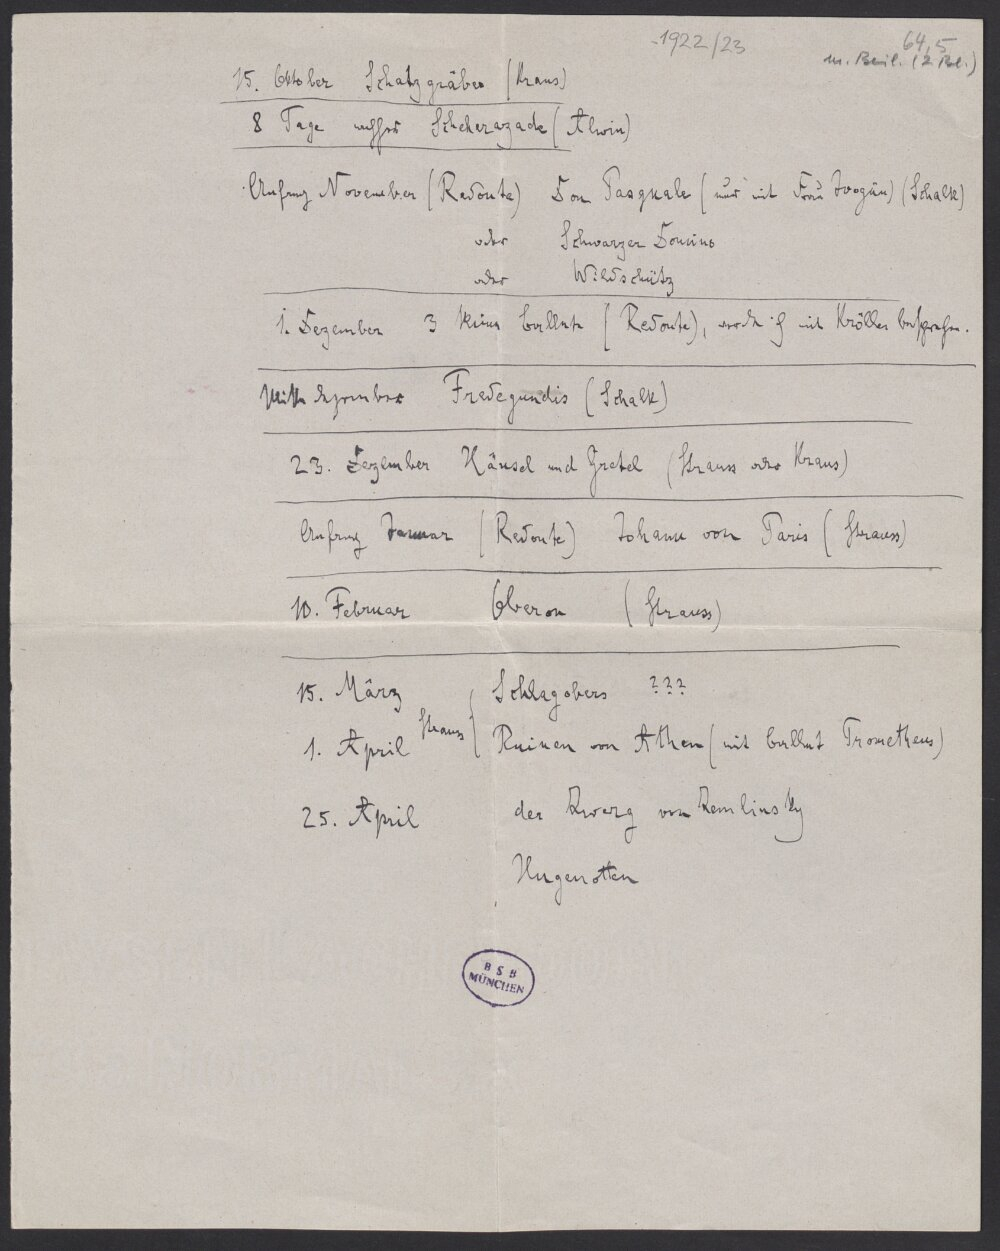 1922/23
64,5
m. Beil. (2 Bl.)
15. Oktober Schatzgräber (Kraus)
8 Tage später Scheherazade (Alwin)
Anfang November (Redoute) Don Pasquale (nur mit Frau Ivogün) (Schalk)
oder Schwarzer Domino
oder Wildschütz
1. Dezember 3 kleine Ballette (Redoute), werde ich mit Kröller besprechen.
Mitte Dezember Fredegundis (Schalk)
23. Dezember Hänsel und Gretel (Strauss oder Kraus)
Anfang Januar (Redoute) Johann von Paris (Strauss)
10. Februar Oberon (Strauss)
15. März Schlagobers ???
Strauss
1. April Ruinen von Athen (mit Ballet Prometheus)
25. April der Zwerg von Zemlinsky
Hugenotten
BSB
MÜNCHEN